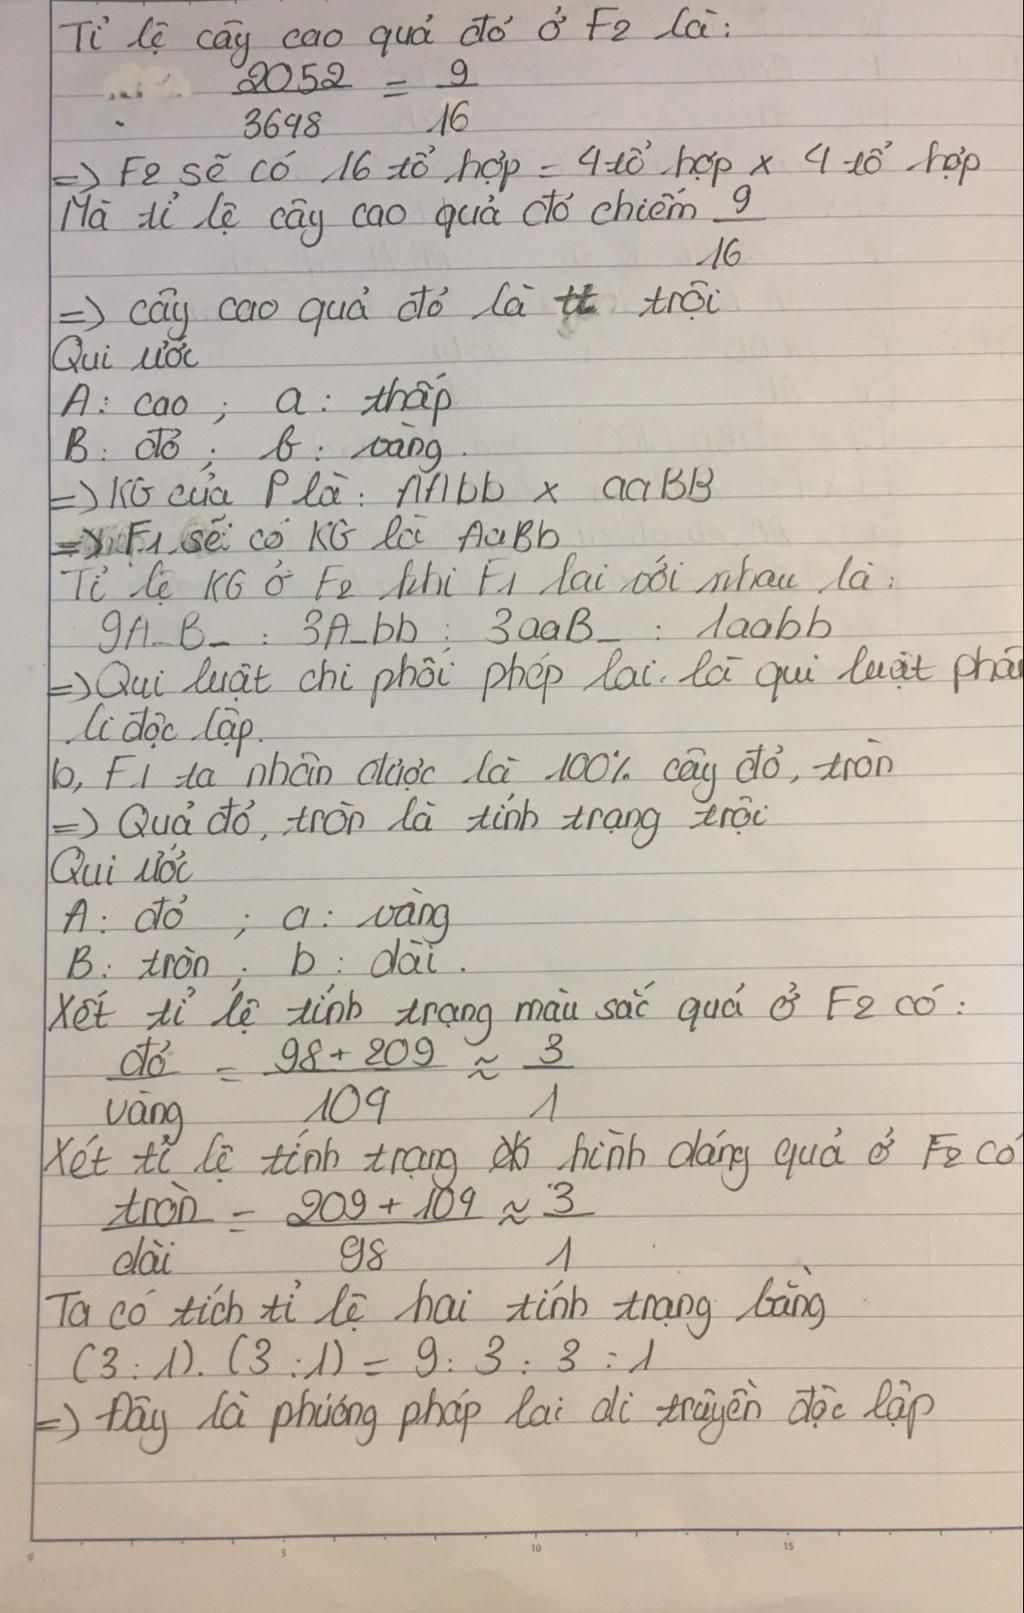 Tỉ lệ cây cao quả đỏ ở F2 là:
2052 = 9
3648 16
=> F2 sẽ có 16 tổ hợp = 4 tổ hợp x 4 tổ hợp
Mà tỉ lệ cây cao quả đỏ chiếm 9
16
=> cây cao quả đỏ là tt trội
Qui ước
A: cao ; a: thấp
B: đỏ ; b: vàng.
=> KG của P là: AAbb x aaBB
=> F1 sẽ có KG là AaBb
Tỉ lệ KG ở F2 khi F1 lai với nhau là:
9A_B_ : 3A_bb : 3aaB_ : 1aabb
=> Qui luật chi phối phép lai là qui luật phân
li độc lập.
b, F1 ta nhân được là 100% cây đỏ, tròn
=> Quả đỏ, tròn là tính trạng trội
Qui ước
A: đỏ ; a: vàng
B: tròn ; b: dài.
Xét tỉ lệ tính trạng màu sắc quả ở F2 có:
đỏ = 98 + 209 ≈ 3
vàng 109 1
Xét tỉ lệ tính trạng hình dáng quả ở F2 có
tròn = 209 + 109 ≈ 3
dài 98 1
Ta có tích tỉ lệ hai tính trạng bằng
(3 : 1). (3 : 1) = 9 : 3 : 3 : 1
=> Đây là phương pháp lai di truyền độc lập
0 5 10 15